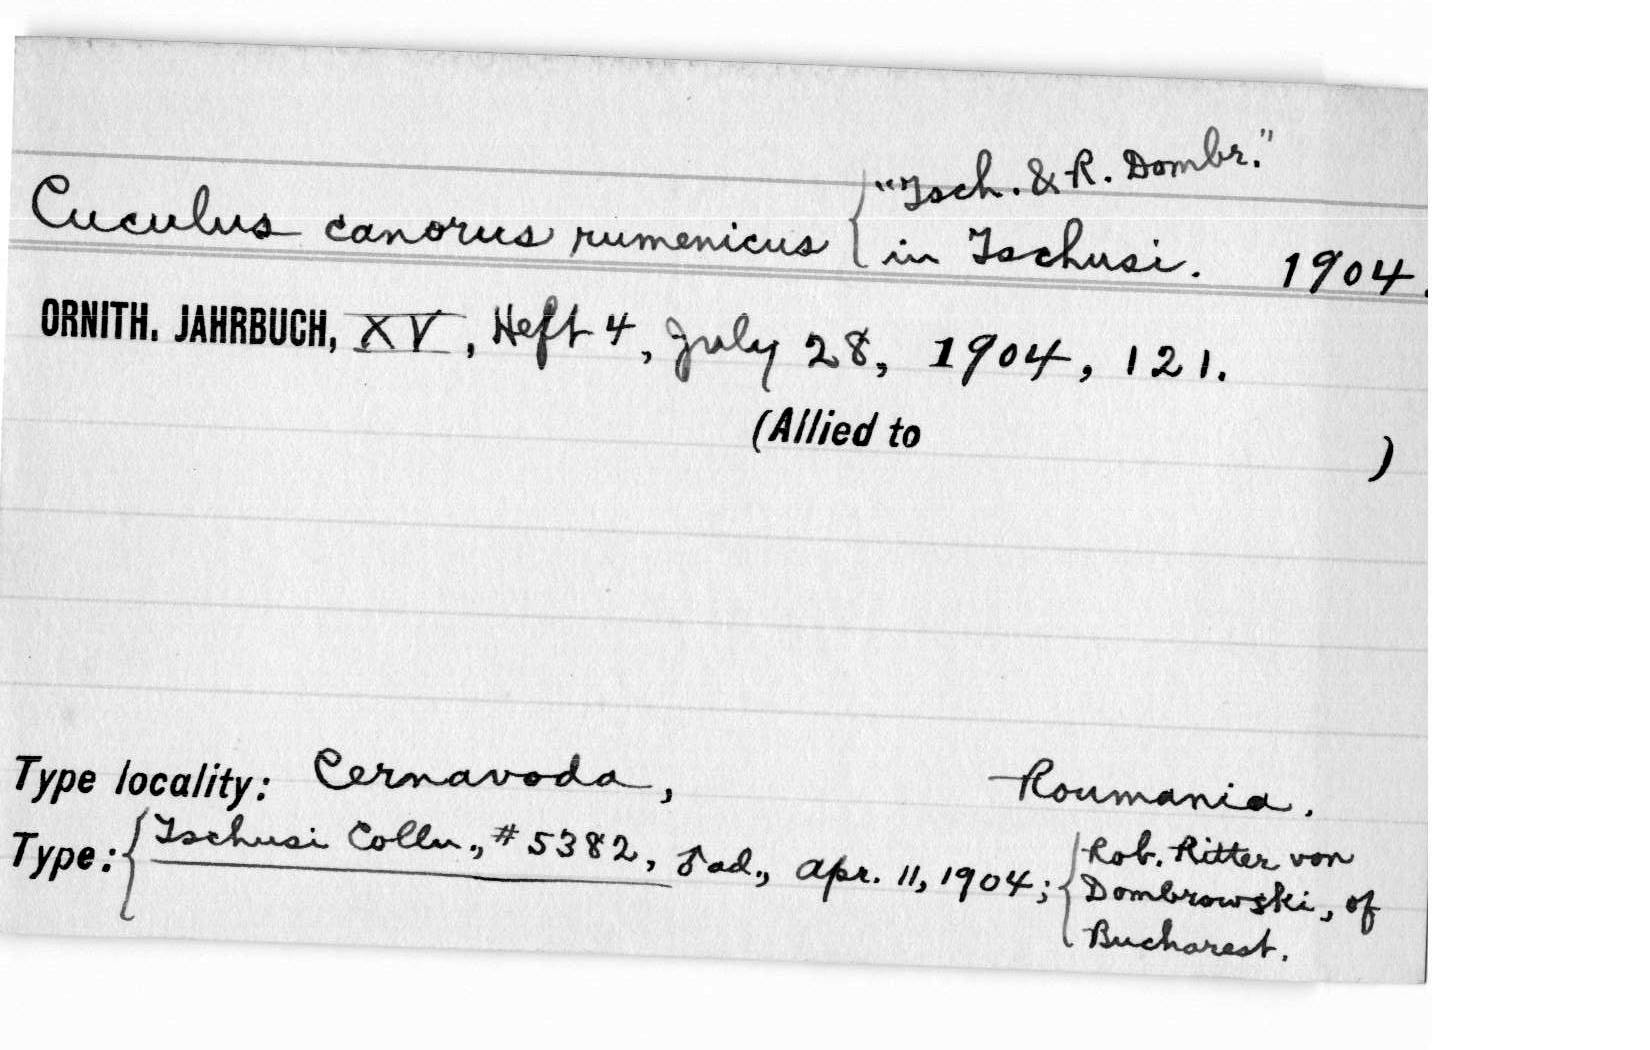 "Tsch. & R. Dombr."
Cuculus canorus rumenicus { in Tschusi. 1904.
ORNITH. JAHRBUCH, XV, Heft 4, July 28, 1904, 121.
(Allied to )
Type locality: Cernavoda, Roumania.
Type: { Tschusi Colln., #5382, ♂ ad., Apr. 11, 1904; { Rob. Ritter von
Dombrowski, of
Bucharest.